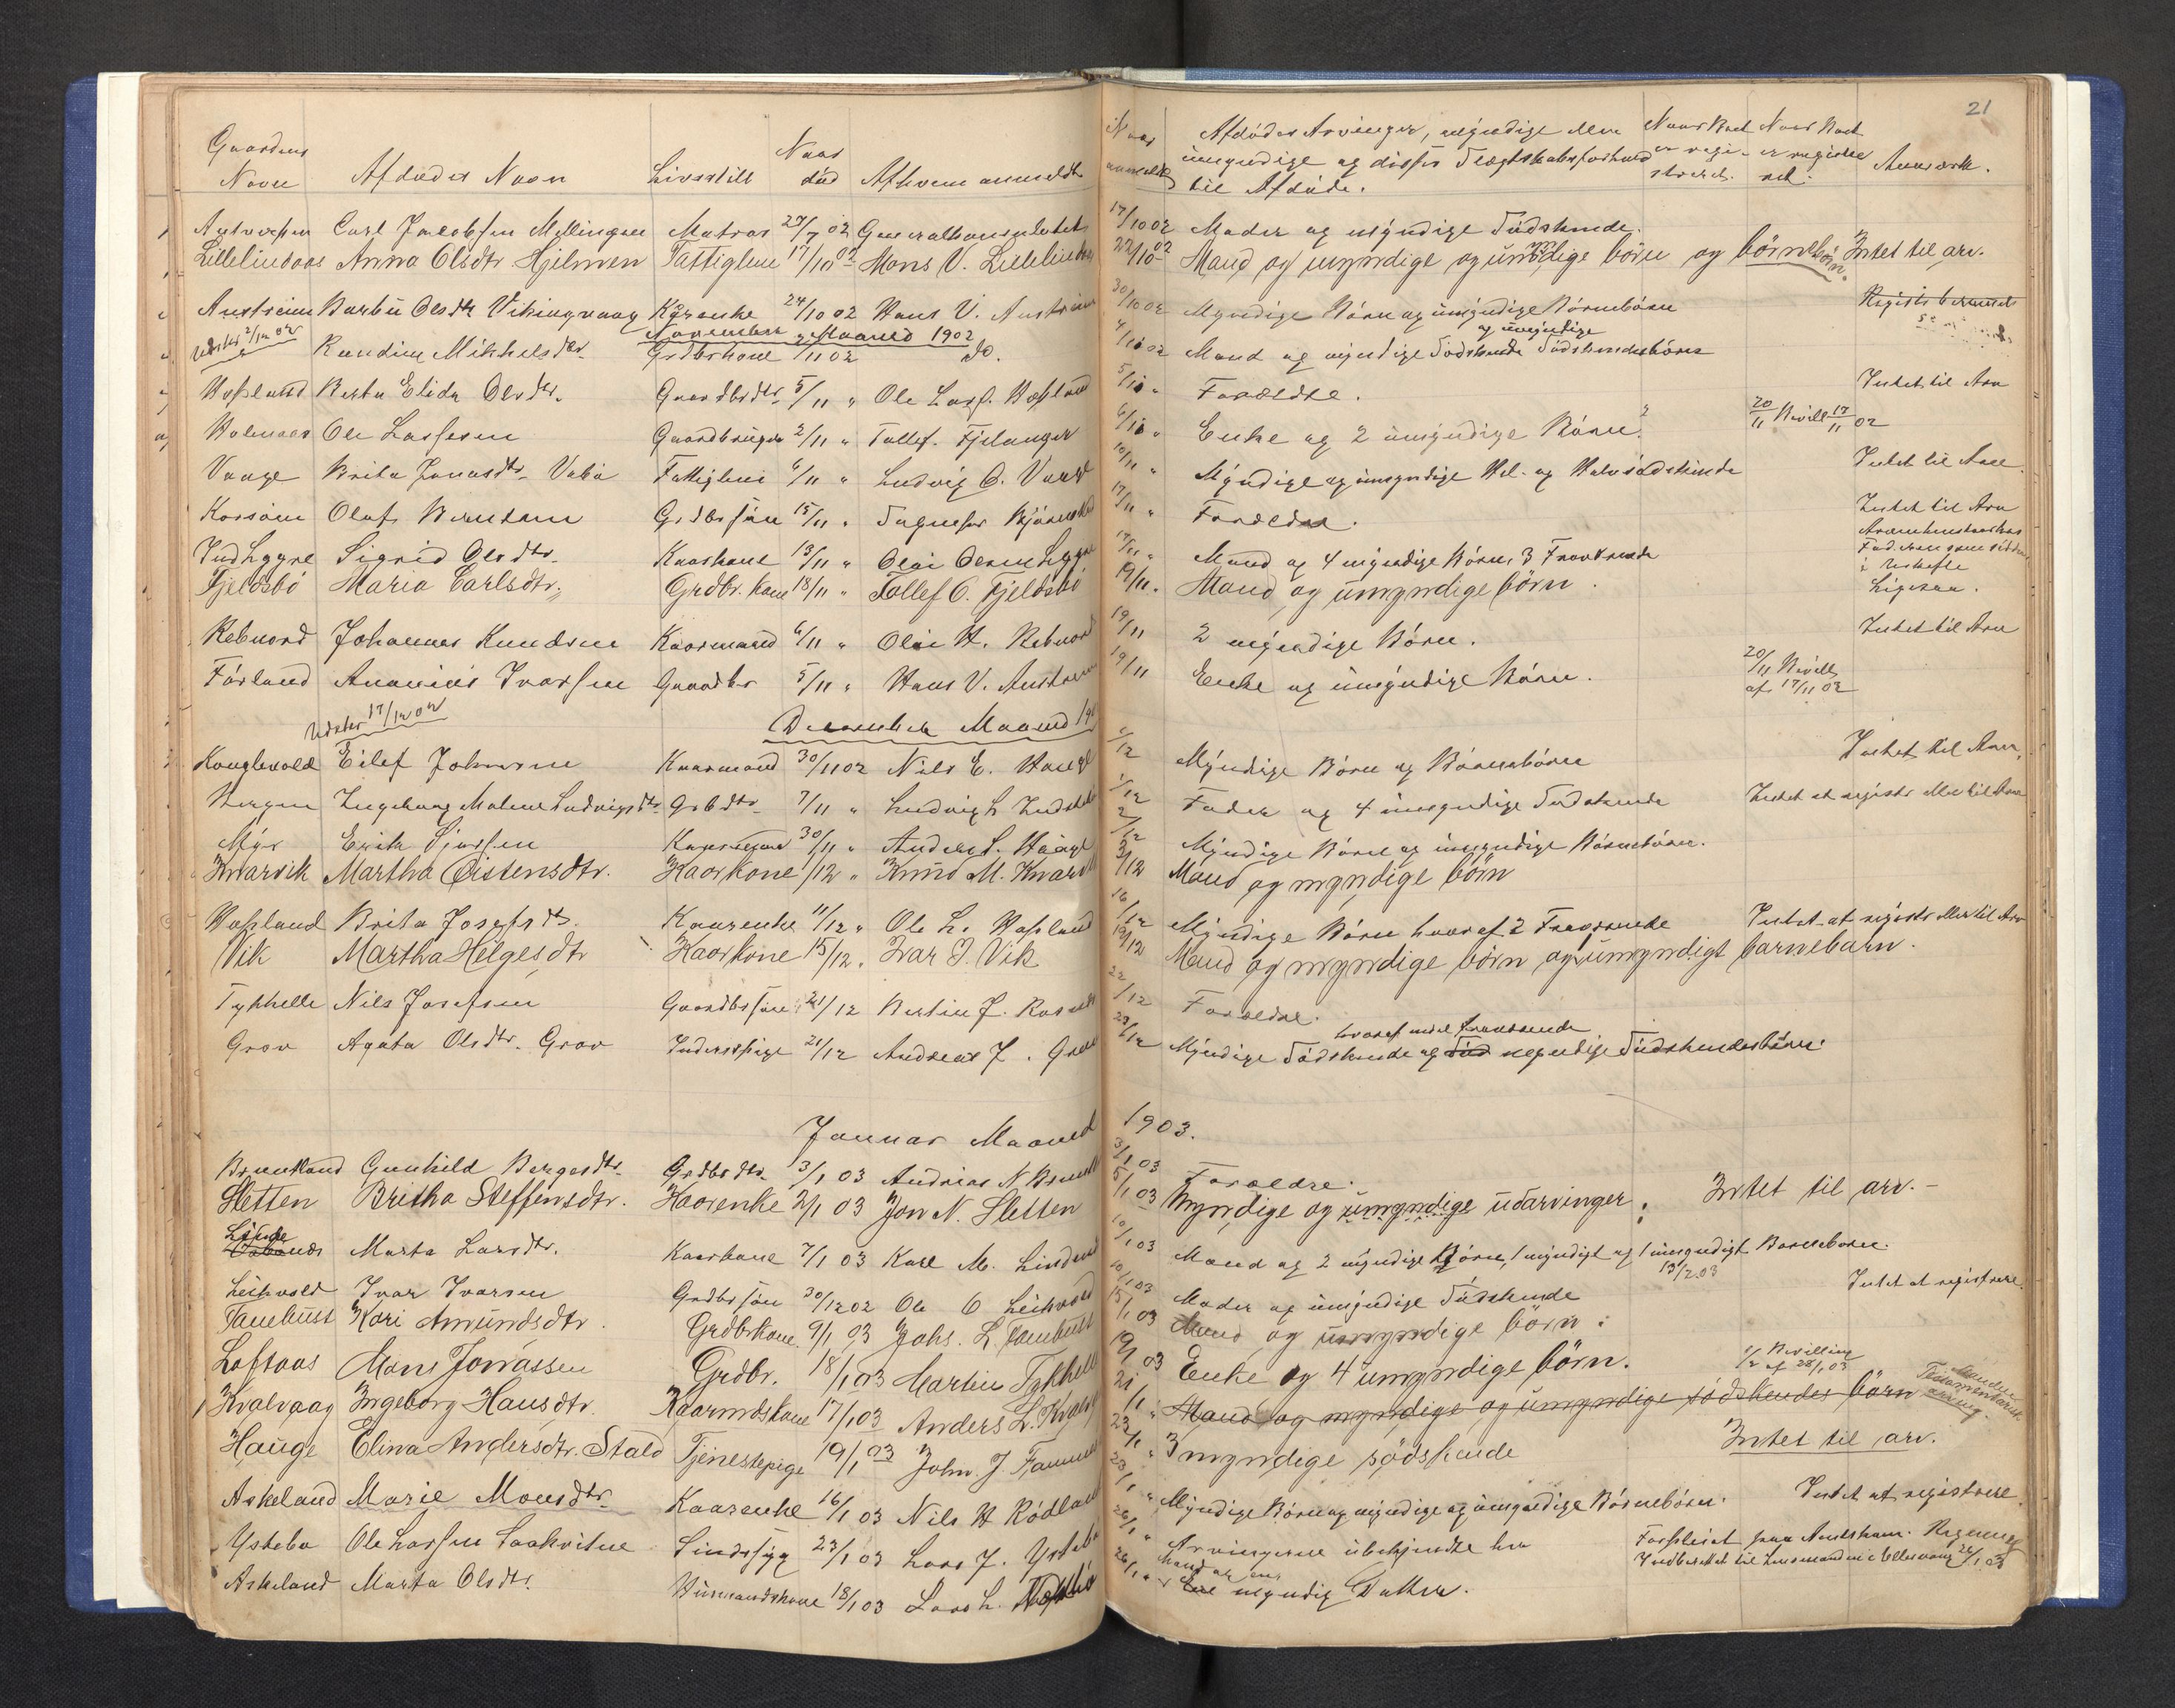 21
Gaardens Navn Afdödes Navn Livsstill Naar död Af hvem anmeldt Naar anmeldt Afdödes Arvinger, myndige eller umyndige og disses Slægtskabsforhold til Afdöde. Naar Boet er regi-streret. Naar Boet er registre ret. Anmærk.
Carl Jacobsen Mellingen Matros 27/7 02 Generalkonsulatet 17/10 02 Moder og myndige Södskende.
Lillelindaas Anna Olsdtr Hjelmen Fattiglem 17/10 02 Mons V. Lillelindaas 22/10 02 Mand og myndige og umyndige börn og börnebörn. Intet til arv.
Austreim Barbu Olsdtr Vikingvaag Kaarenke 24/10 02 Hans V. Austreim 30/10 02 Myndige Börn og umyndige Börnebörn
November Maaned 1902
Udskr 2/12 02 Rundine Mikkelsdtr Grdbrkone /11 02 do. 4/11 02 Mand og myndige Södskende og umyndige Södskendebörn
Hopland Berta Elida Olsdtr. Gaardbrdtr 5/11 " Ole Lars. Hopland 5/11 " Forældre. Intet til Arv
Holmaas Ole Lassesen Gaardbruger 2/11 " Tollef. Fjelanger 6/11 " Enke og 2 umyndige Börn. 20/11 Bevill 17/11 02
Vaage Brita Jonasdtr Vabö Fattiglem 6/11 " Ludvig O. Vaage 10/11 " Myndige og umyndige Hel- og Halvsödskende Intet til Arv
Korsöen Olaf Berntsen Grdbrsön 15/11 " 17/11 " Forældre. Intet til Arv
Indlygre Sigrid Olsdtr. Kaarkone 13/11 " Olai Olsen Lygre 17/11 " Mand og 4 myndige Börn, 3 Fraværende
Fjeldsbö Maria Carlsdtr. Grdbr. kone 18/11 " Tollef O. Fjeldsbö 19/11 " Mand og umyndige börn. Ligesaa.
Rebnord Johannes Knudsen Kaarmand 6/11 " Olai H. Rebnord 19/11 2 myndige Börn. Intet til Arv
Förland Ananias Ivarsen Gaardbr 5/11 " Hans V. Austreim 19/11 Enke og umyndige Börn. 20/11 Bevill af 17/11 02
Udskr 17/12 02
December Maaned 190
Konglevold Eilef Johnsen Kaarmand 30/11 02 Nils E. Hauge 1/12 Myndige Börn og Börnebörn Intet til Arv.
Bergen Ingeborg Malene Ludvigsdtr Grbdtr 7/11 " Ludvig L 1/12 Fader og 4 umyndige Södskende Intet at registr eller til Arv
Myr Erik Sjursen 30/11 " Anders S. Hauge 2/12 Myndige Börn og umyndige Börnebörn.
Kvarvik Martha Öistensdtr. Kaarkone 1/12 " Knud M. Kvarvik 3/12 Mand og myndige börn
Hopland Brita Josefsdtr. Kaarenke 11/12 " Ole L. Hopland 16/12 Myndige Börn hvoraf 2 Fraværende Intet at registr eller til Arv
Vik Martha Helgesdtr Kaarkone 15/12. Ivar J. Vik 19/12 Mand og myndige börn og umyndigt barnebarn.
Tykhelle Nils Josefsen Gaardbrsön 21/12 Bertin J. 22/12 Forældre.
Grov Agata Olsdtr. Grov Inderstpige 21/12 Andreas J. Grov 23/12 Myndige Södskende og myndige Södskendebörn. hvoraf endel fraværende
Januar Maaned 1903.
Bruntland Gunhild Bergesdtr Grdbrdtr. 3/1 03 Andreas N. 3/1 03 Forældre.
Sletten Britha Steffensdtr. Kaarenke 2/1 03 Jon N. Sletten 5/1 03 Myndige og umyndige udarvinger. Intet til arv. -
Linde Marta Larsdtr. Kaarkone 7/1 03 Karl M. Linde 10/1 03 Mand og 2 myndige Börn, 1 myndigt og 1 umyndigt Barnebarn.
Leikvold Ivar Ivarsen Grdbrsön 30/12 02 Ole O Leikvold 10/1 03 Moder og umyndige Södskende 13/2 03 Intet at registrere.
Tanebust Kari Amundsdtr. Grdbrkone 9/1 03 Johs. L. Tanebust 15/1 03 Mand og umyndige börn.
Loftaas Mons Jonassen Grdbr. 18/1 03 Martin Tykhelle 19/1 03 Enke og 4 umyndige börn. Bevilling af 28/1 03
Kvalvaag Ingeborg Hansdtr. Kaarmdskone 17/1 03 Anders L. Kvalvaag 21/1 " Mand og myndige og umyndige södskendes börn Manden Testamentarisk arving.
Hauge Elina Andersdtr. Stald Tjenestepige 19/1 03 John. J. 23/1 " 3 myndige södskende Intet til arv.
Askeland Marie Monsdtr. Kaarenke 16/1 03 Nils H Rödland 23/1 " Myndige Börn og myndige og umyndige Börnebörn. Intet at registrere.
Ystebö Ole Larsen Saakvitne Sindssyg 23/1 03 Lars J. Ystebö 26/1 " Arvingerne ubekjendte her Forpleiet paa Amtskom. Regning Indberettet til Lensmanden i Ullensvang 26/1 03
Askeland Marta Olsdtr. Husmandskone 18/1 03 Lars L. 26/1 " Mand og en myndig Datter.